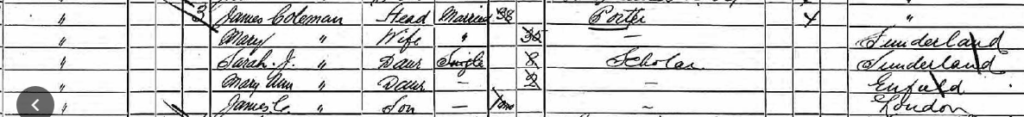 " 3 James Coleman Head Married 38 Porter "
" Mary " Wife " 30 — Sunderland
" Sarah J. " Daur Single 8 Scholar Sunderland
" Mary Ann " Daur — 2 Enfield
" James C. " Son — — London